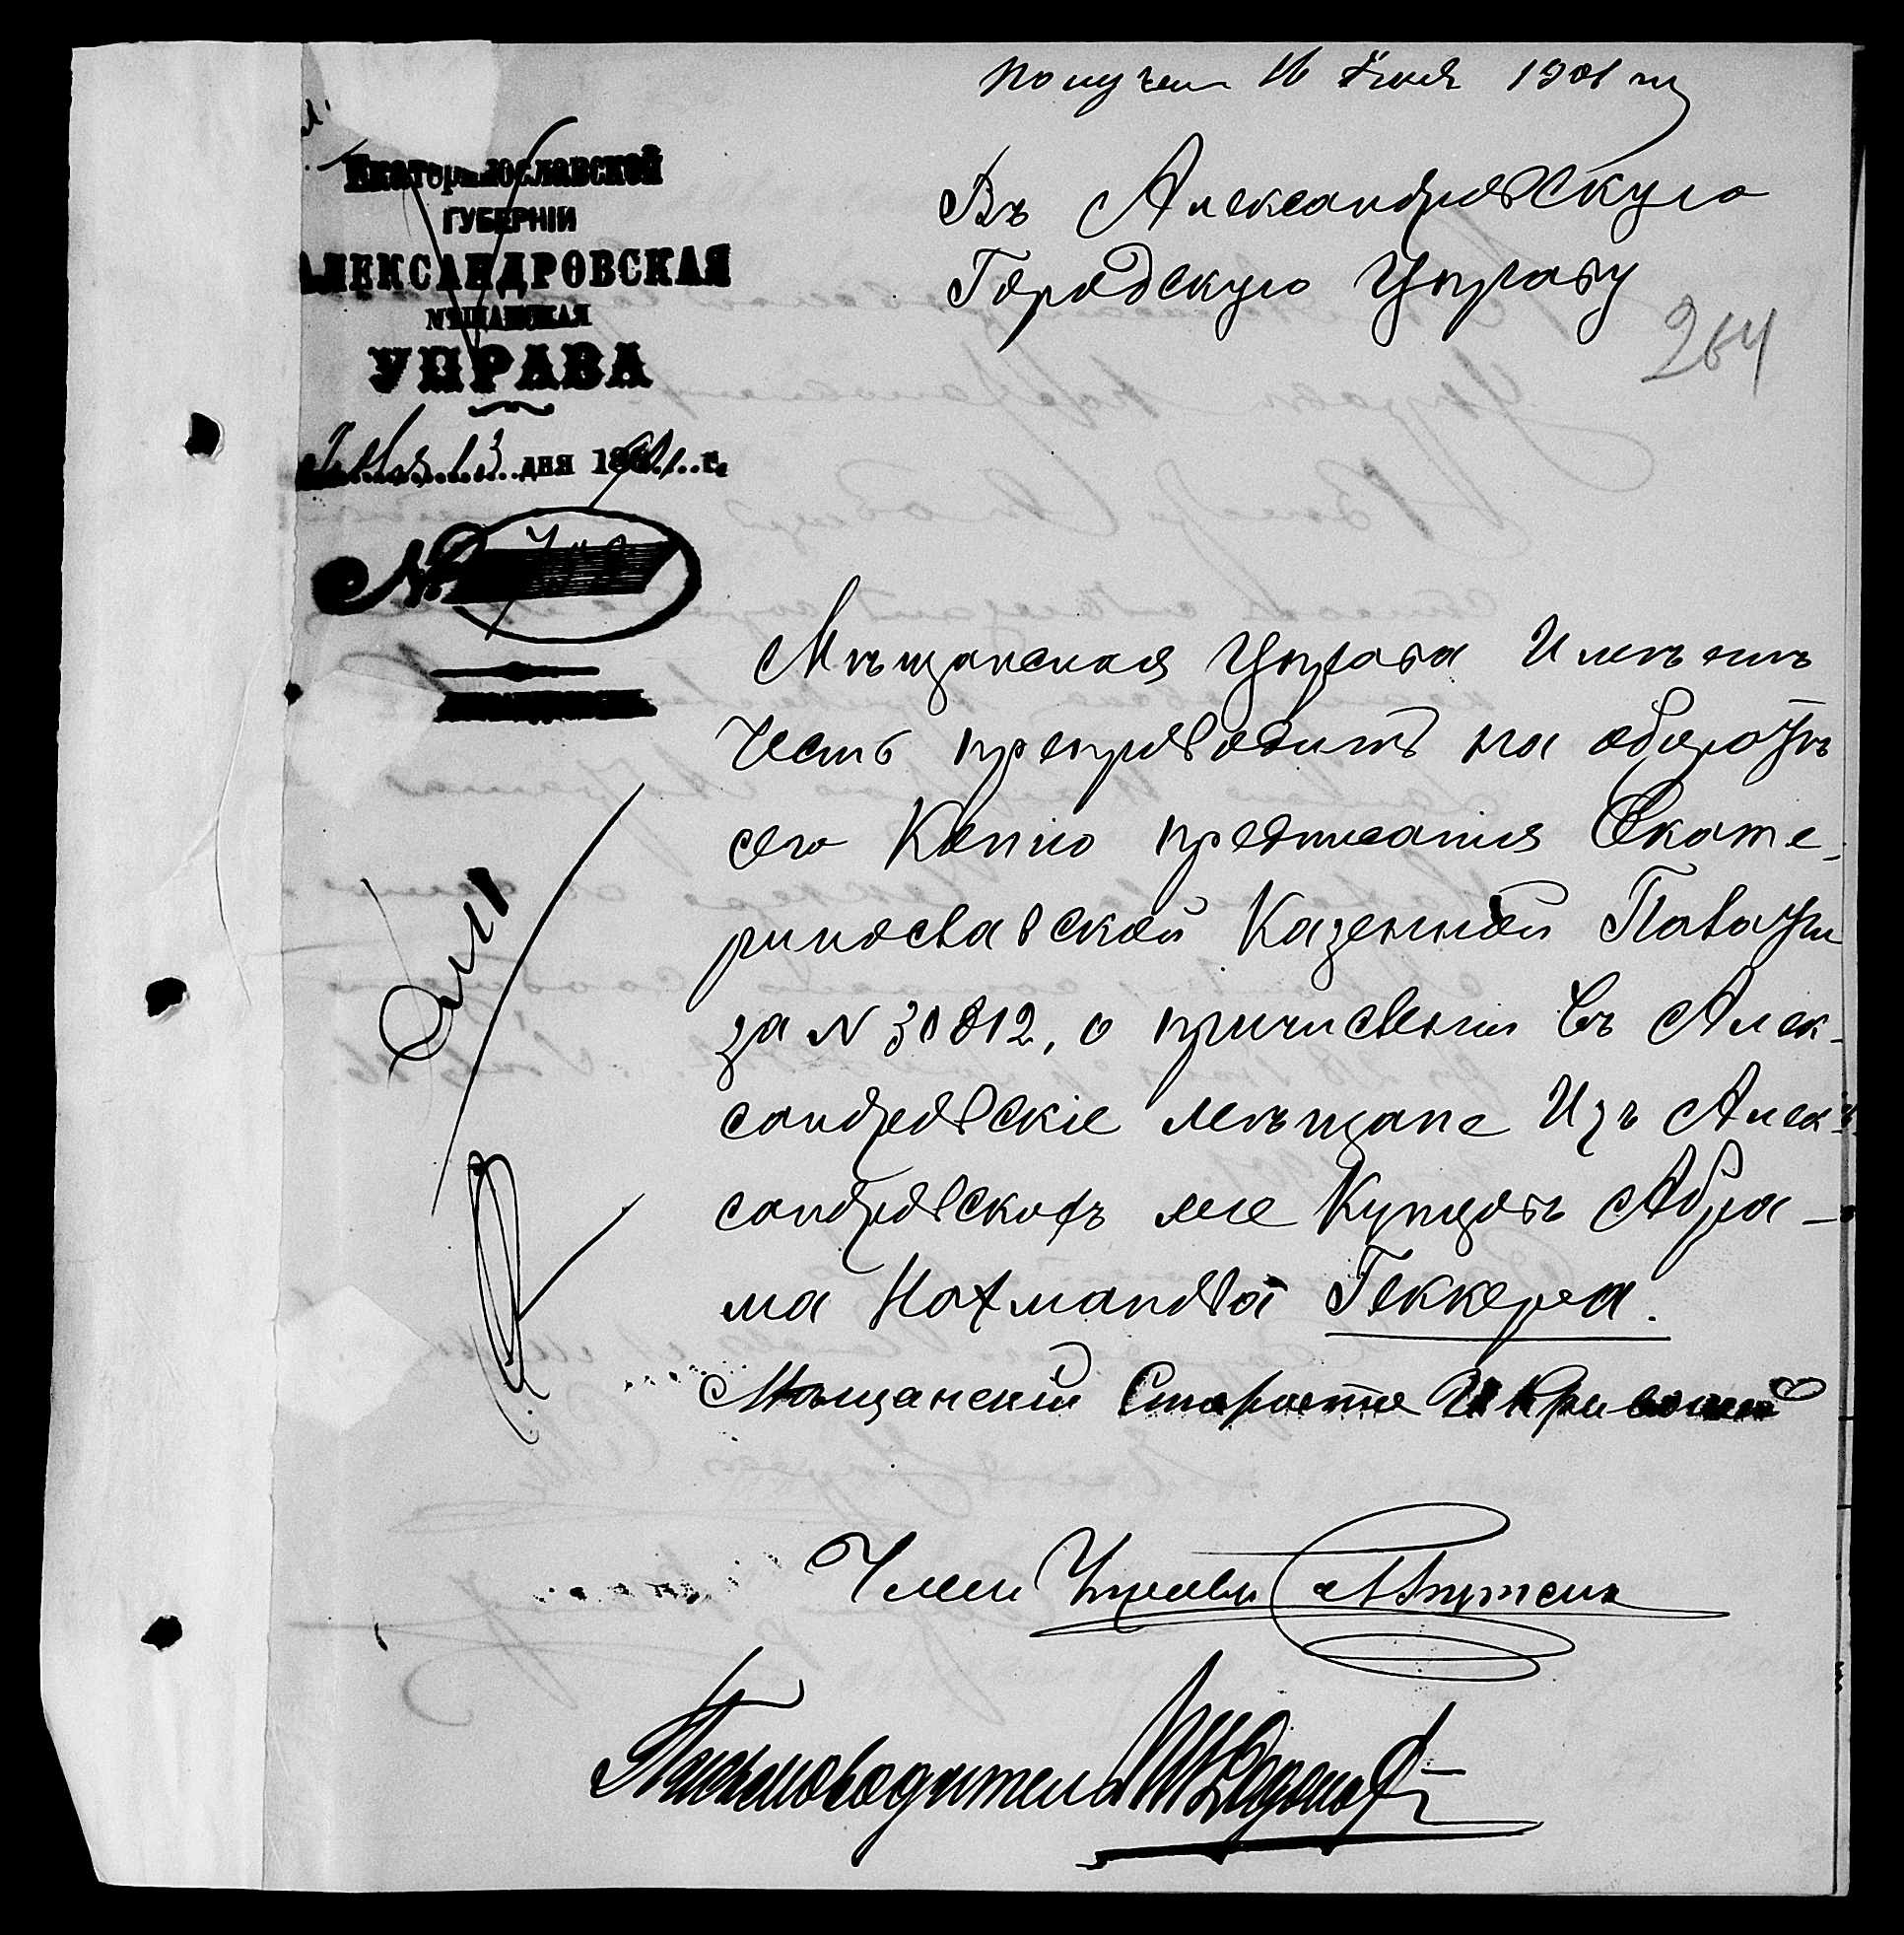 Получен 16 Июня 1901 г.
Екатеринославской
ГУБЕРНІИ
АЛЕКСАНДРОВСКАЯ
МѢЩАНСКАЯ
УПРАВА
Іюня 13 дня 1901 г.
№
Въ Александровскую
Городскую Управу
264
Мѣщанская Управа Имѣетъ
честь препроводить на оборотѣ
сего Копію предписанія Екате-
ринославской Казенной Палаты
за N 30812, о причисленіи въ Алек-
сандровскіе мѣщане Изъ Алек-
сандровскихъ же Купцовъ Абра-
ма Нахманова Геккера.
Мѣщанскій Староста
Член Управы
Письмоводитель